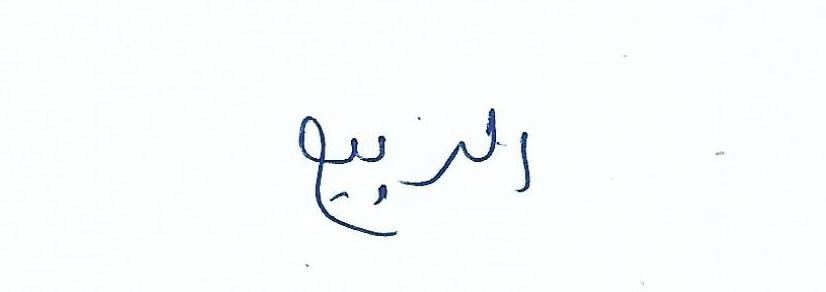 الربيع